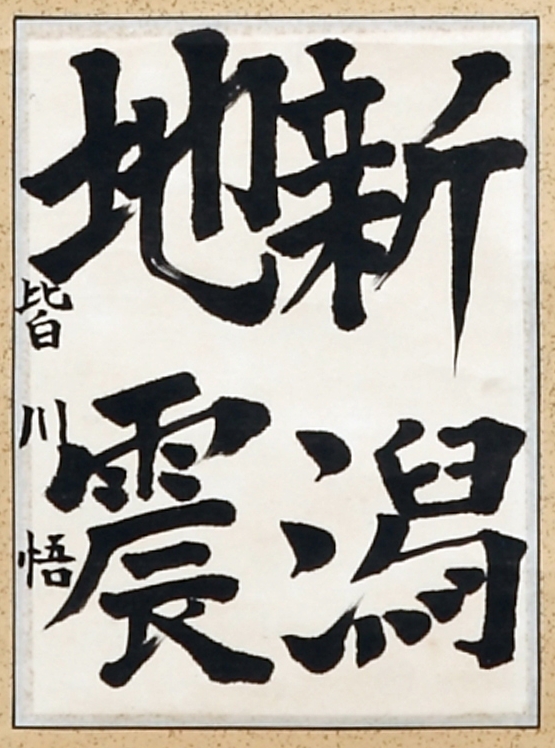 新潟
地震
皆川悟